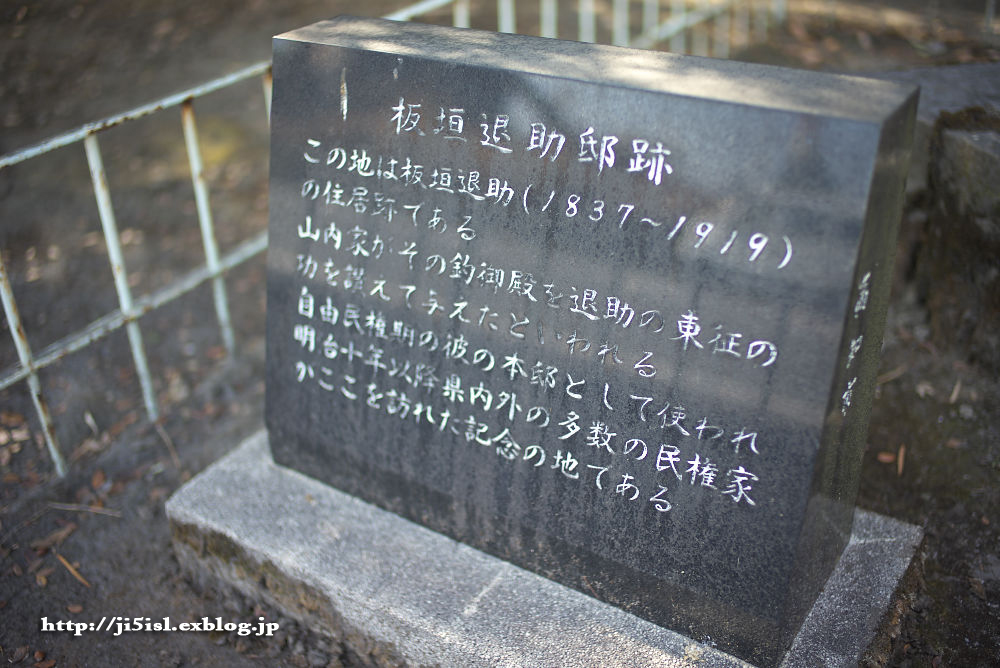 板垣退助邸跡
この地は板垣退助(1837~1919)
の住居跡である
山内家がその釣御殿を退助の東征の
功を讃えて与えたといわれる
自由民権期の彼の本邸として使われ
明治十年以降県内外の多数の民権家
がここを訪れた記念の地である
http://ji5isl.exblog.jp/